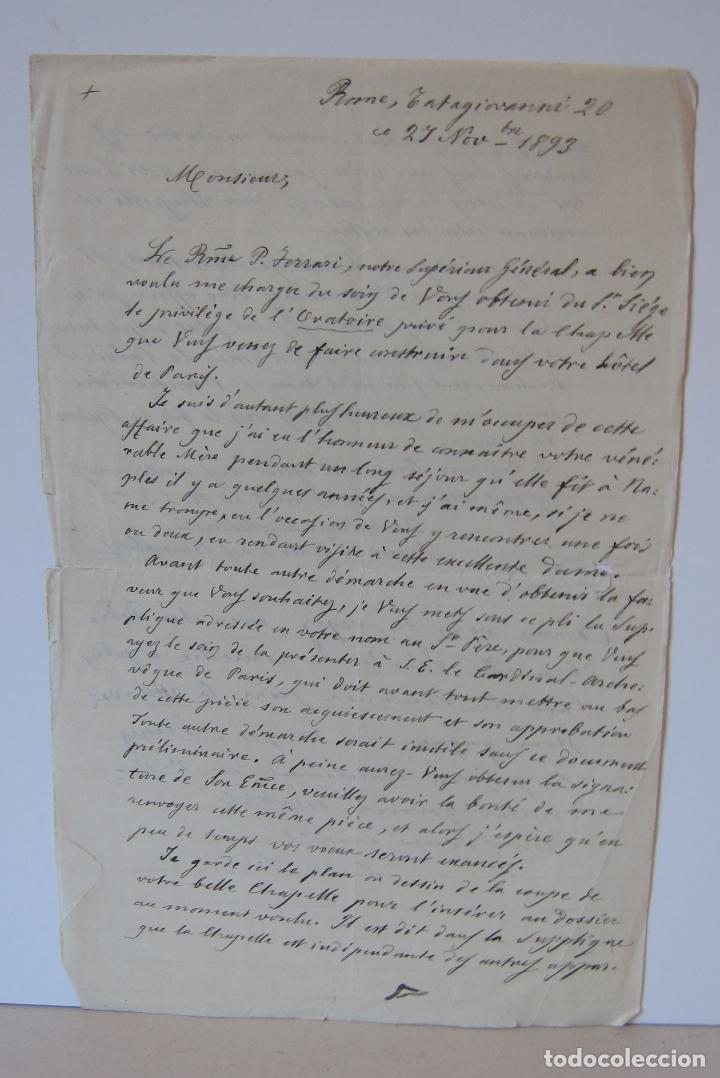 +
Rome, Tatagiovanni 20
ce 27 Nov-bre 1893
Monsieur,
Le Rme P. Ferrari, notre Supérieur Général, a bien
voulu me charger du soin de Vous obtenir du St Siége
le privilége de l'Oratoire privé pour la Chapelle
que Vous venez de faire construire dans votre hôtel
de Paris.
Je suis d'autant plus heureux de m'occuper de cette
affaire que j'ai eu l'honneur de connaître votre véné-
rable Mère pendant un long séjour qu'elle fit à Na-
ples il y a quelques années, et j'ai même, si je ne
me trompe, eu l'occasion de Vous y rencontrer une fois
ou deux, en rendant visite à cette excellente dame.
Avant toute autre démarche en vue d'obtenir la fa-
veur que Vous souhaitez, je Vous mets sous ce pli la Sup-
plique adressée en votre nom au St Père, pour que Vous
ayez le soin de la présenter à S. E. le Cardinal-Arche-
vêque de Paris, qui doit avant tout mettre au bas
de cette pièce son acquiescement et son approbation
préliminaire. Toute autre démarche serait inutile sans ce document
À peine aurez-Vous obtenu la signa-
ture de Son Emce, veuillez avoir la bonté de me
renvoyer cette même pièce, et alors j'espère qu'en
peu de temps vos voeux seront exaucés.
Je garde ici le plan ou dessin de la coupe de
votre belle Chapelle pour l'insérer au dossier
au moment voulu. Il est dit dans la Supplique
que la Chapelle est indépendante des autres appar-
todocoleccion